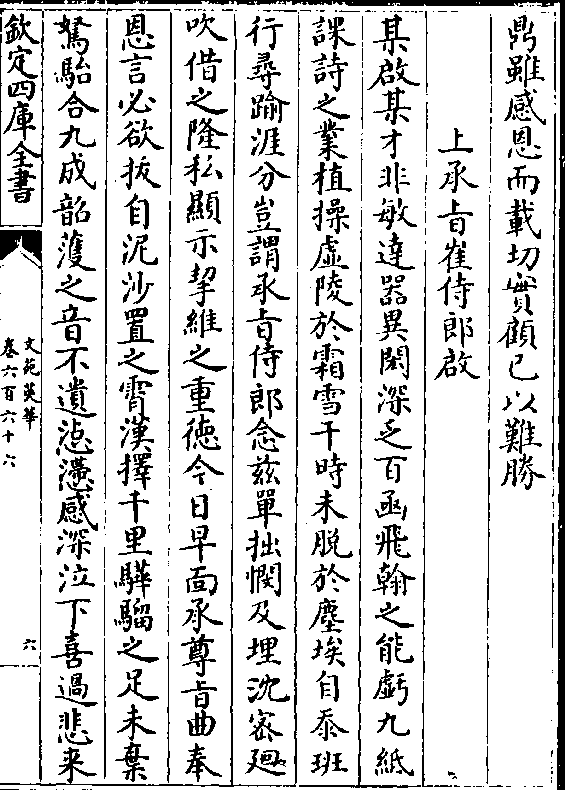 鼎雖感恩而載切實顧已以難勝
上承旨崔侍郎啟
某啟某才非敏達器異閎深乏百函飛翰之能虧九紙
課詩之業植操虛陵於霜雪干時未脫於塵埃自忝班
行尋踰涯分豈謂承旨侍郎念兹單拙憫及埋沈密廻
吹借之隆私顯示挈維之重徳今日早面承尊旨曲奉
恩言必欲拔自泥沙置之霄漢擇千里驊騮之足未棄
駑駘合九成韶頀之音不遺惉懘感深泣下喜過悲来
欽定四庫全書
文苑英華
卷六百六十六
六